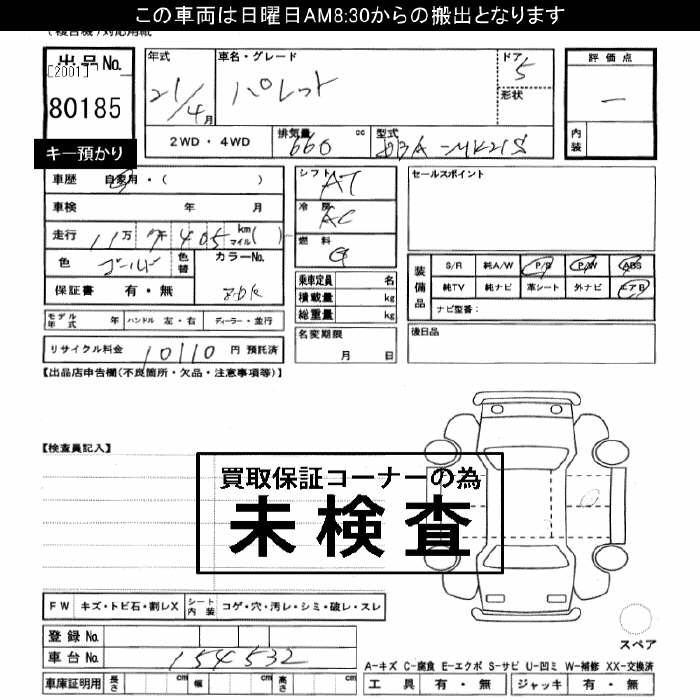 この車両は日曜日AM8:30からの搬出となります
(複合機)対応用紙
出品No.
[2001]
80185
キー預かり
年式
21/4月
車名・グレード
パレット
ドア
5
形状
2WD・4WD
排気量
660 cc
型式
DBA-MK21S
評価点
—
内装
車歴 自家用・( )
車検 年 月
走行 11万 7千 405 km マイル( )
色 ゴールド 色替 カラーNo.
保証書 有・無
モデル年式 年 ハンドル 左・右 ディーラー・並行
リサイクル料金 10110 円 預託済
シフト AT
冷房 AC
燃料 G
乗車定員 名
積載量 kg
総重量 kg
名変期限
月 日
セールスポイント
装備品
S/R 純A/W P/S P/W ABS
純TV 純ナビ 革シート 外ナビ エアB
ナビ型番:
後日品
【出品店申告欄(不良箇所・欠品・注意事項等)】
【検査員記入】
買取保証コーナーの為
未検査
FW キズ・トビ石・割レX シート内装 コゲ・穴・汚レ・シミ・破レ・スレ
登録No.
車台No. 154532
車庫証明用 長さ cm 幅 cm 高さ cm
スペア
A-キズ C-腐食 E-エクボ S-サビ U-凹ミ W-補修 XX-交換済
工具 有・無 ジャッキ 有・無